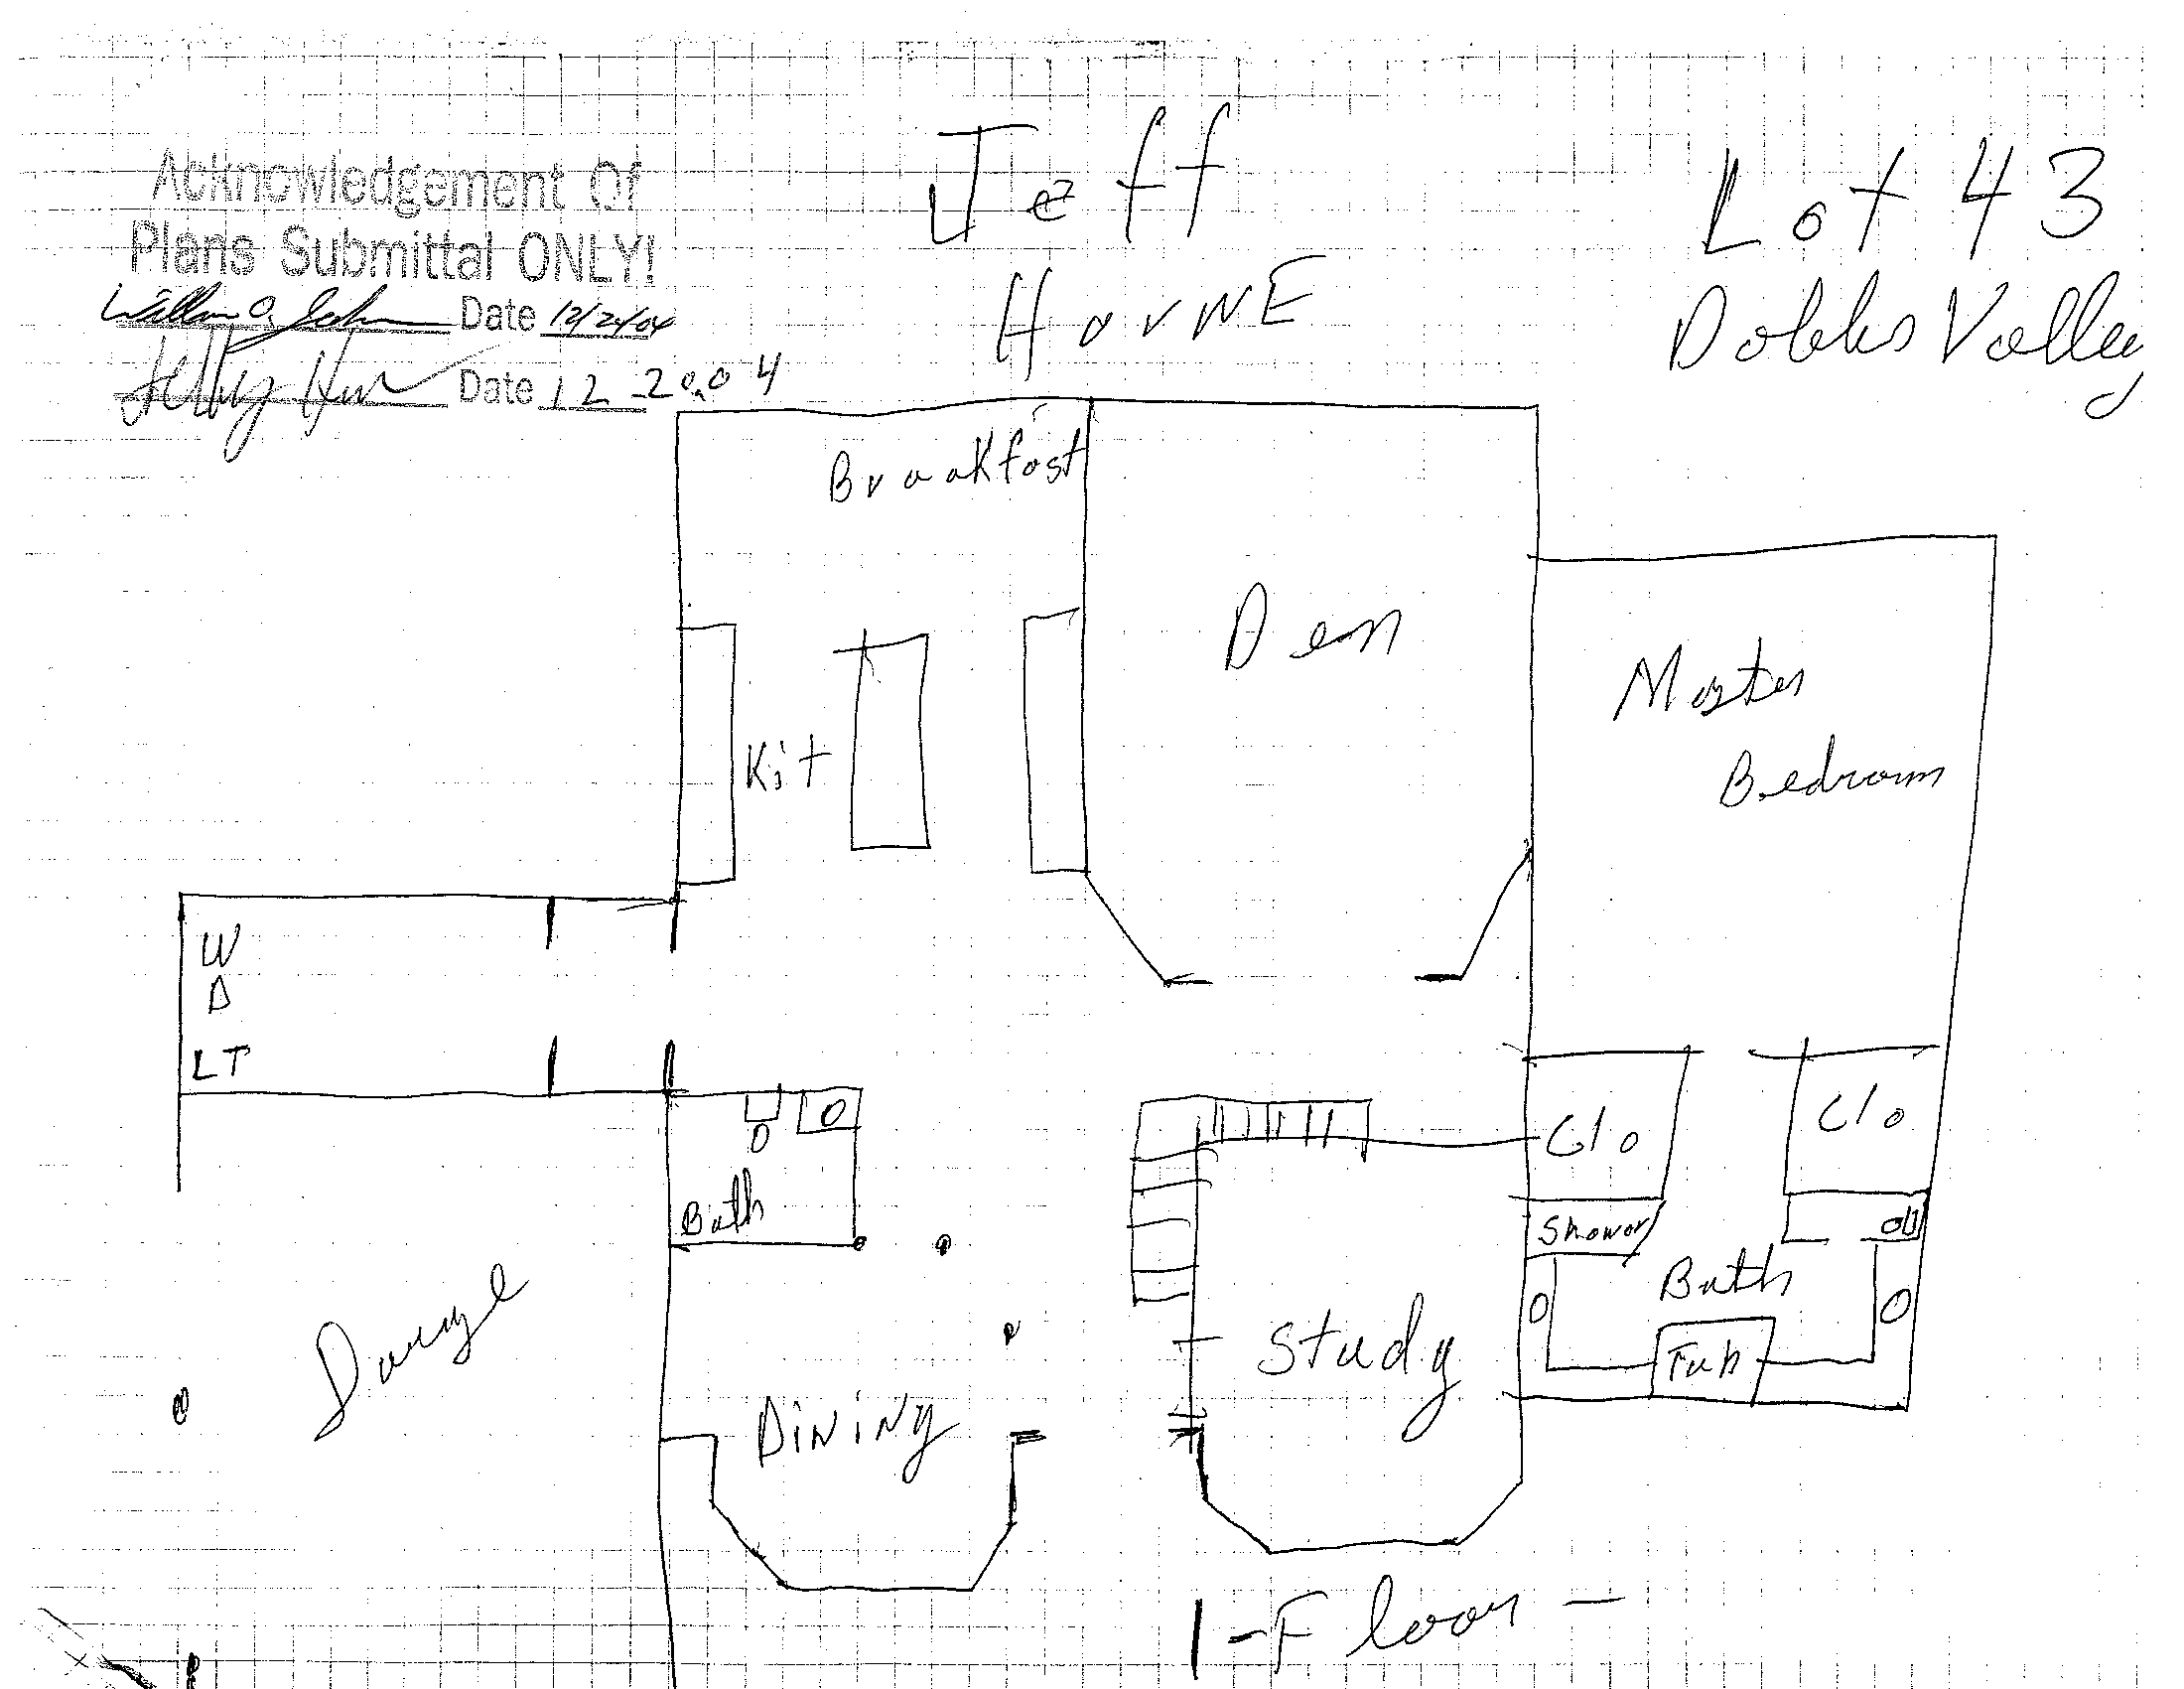 Acknowledgement Of
Plans Submittal ONLY!
Date 12/2/04
Date 12 20.04
Jeff
HorNE
Lot 43
Dobbs Valley
Breakfast
Den
Master
Bedroom
Kit
W
D
LT
Clo
Clo
Bath
Shower
Bath
Tub
Study
Garage
DiNiNg
1-Floor-